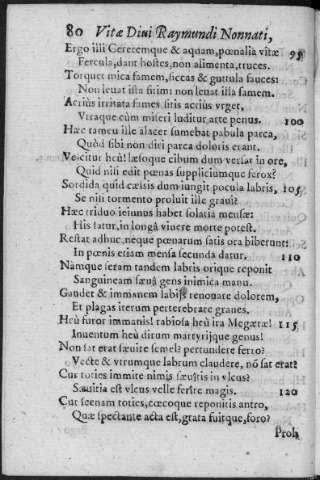 80 Vitæ Diui Raymundi Nonnati,
Ergo illi Cereremque & aquam, pœnalia vitæ 95
Fercula, dant hostes, non alimenta, truces.
Torquet mica famem, siccas & guttula fauces:
Non leuat ista sitim: non leuat illa famem.
Acriùs irritata fames, sitis acriùs vrget,
Vtraque cùm miseri luditur arte penus. 100
Hæc tamen ille alacer sumebat pabula parca,
Quòd sibi non dici parca doloris erant.
Vescitur heù! læsoque cibum dum versat in ore,
Quid nisi edit pœnas suppliciùmque ferox?
Sordida quid cælsis dum iungit pocula labris, 105
Se nisi tormento proluit ille graui?
Hæc triduo ieiunus habet solatia mensæ:
His satur, in longâ viuere morte potest.
Restat adhuc, neque pœnarum satis ora biberunt:
In pœnis etiam mensa secunda datur. 110
Nàmque seram tandem labris orique reponit
Sanguineam sæuâ gens inimica manu.
Gaudet & immanem labijs renouare dolorem,
Et plagas iterum perterebrare graues.
Heù furor immanis! rabiosa heù ira Megæræ! 115
Inuentum heù dirum martyrijque genus!
Non sat erat sæuire semel? pertundere ferro?
Vecte & vtrumque labrum claudere, nō sat erat?
Cur toties immite nimis sæuistis in vlcus?
Sæuitia est vlcus velle ferire magis. 120
Cur scenam toties, cœcoque reponitis antro,
Quæ spectante acta est, grata fuitque, foro?
Proh